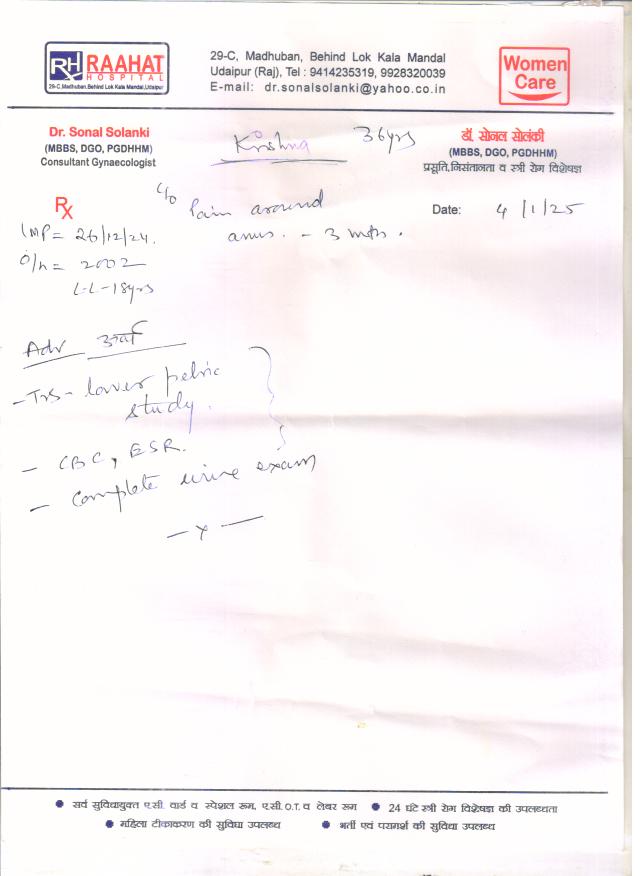 RH RAAHAT
HOSPITAL
29-C,Madhuban,Behind Lok Kala Mandal,Udaipur
29-C, Madhuban, Behind Lok Kala Mandal
Udaipur (Raj), Tel : 9414235319, 9928320039
E-mail: dr.sonalsolanki@yahoo.co.in
Women
Care
Dr. Sonal Solanki
(MBBS, DGO, PGDHHM)
Consultant Gynaecologist
Krishna 36yrs
डॉ. सोनल सोलंकी
(MBBS, DGO, PGDHHM)
प्रसूति,निसंतानता व स्त्री रोग विशेषज्ञ
Rx
c/o Pain around
anus. - 3 mths.
Date: 4/1/25
LMP = 26/12/24.
O/h = 2002
L-L-18yrs
Adv
- TVS - lower pelvic
study.
- CBC, ESR.
- Complete urine exam
- x -
सर्व सुविधायुक्त ए.सी. वार्ड व स्पेशल रूम, ए.सी.O.T. व लेबर रूम
24 घंटे स्त्री रोग विशेषज्ञ की उपलब्धता
महिला टीकाकरण की सुविधा उपलब्ध
भर्ती एवं परामर्श की सुविधा उपलब्ध